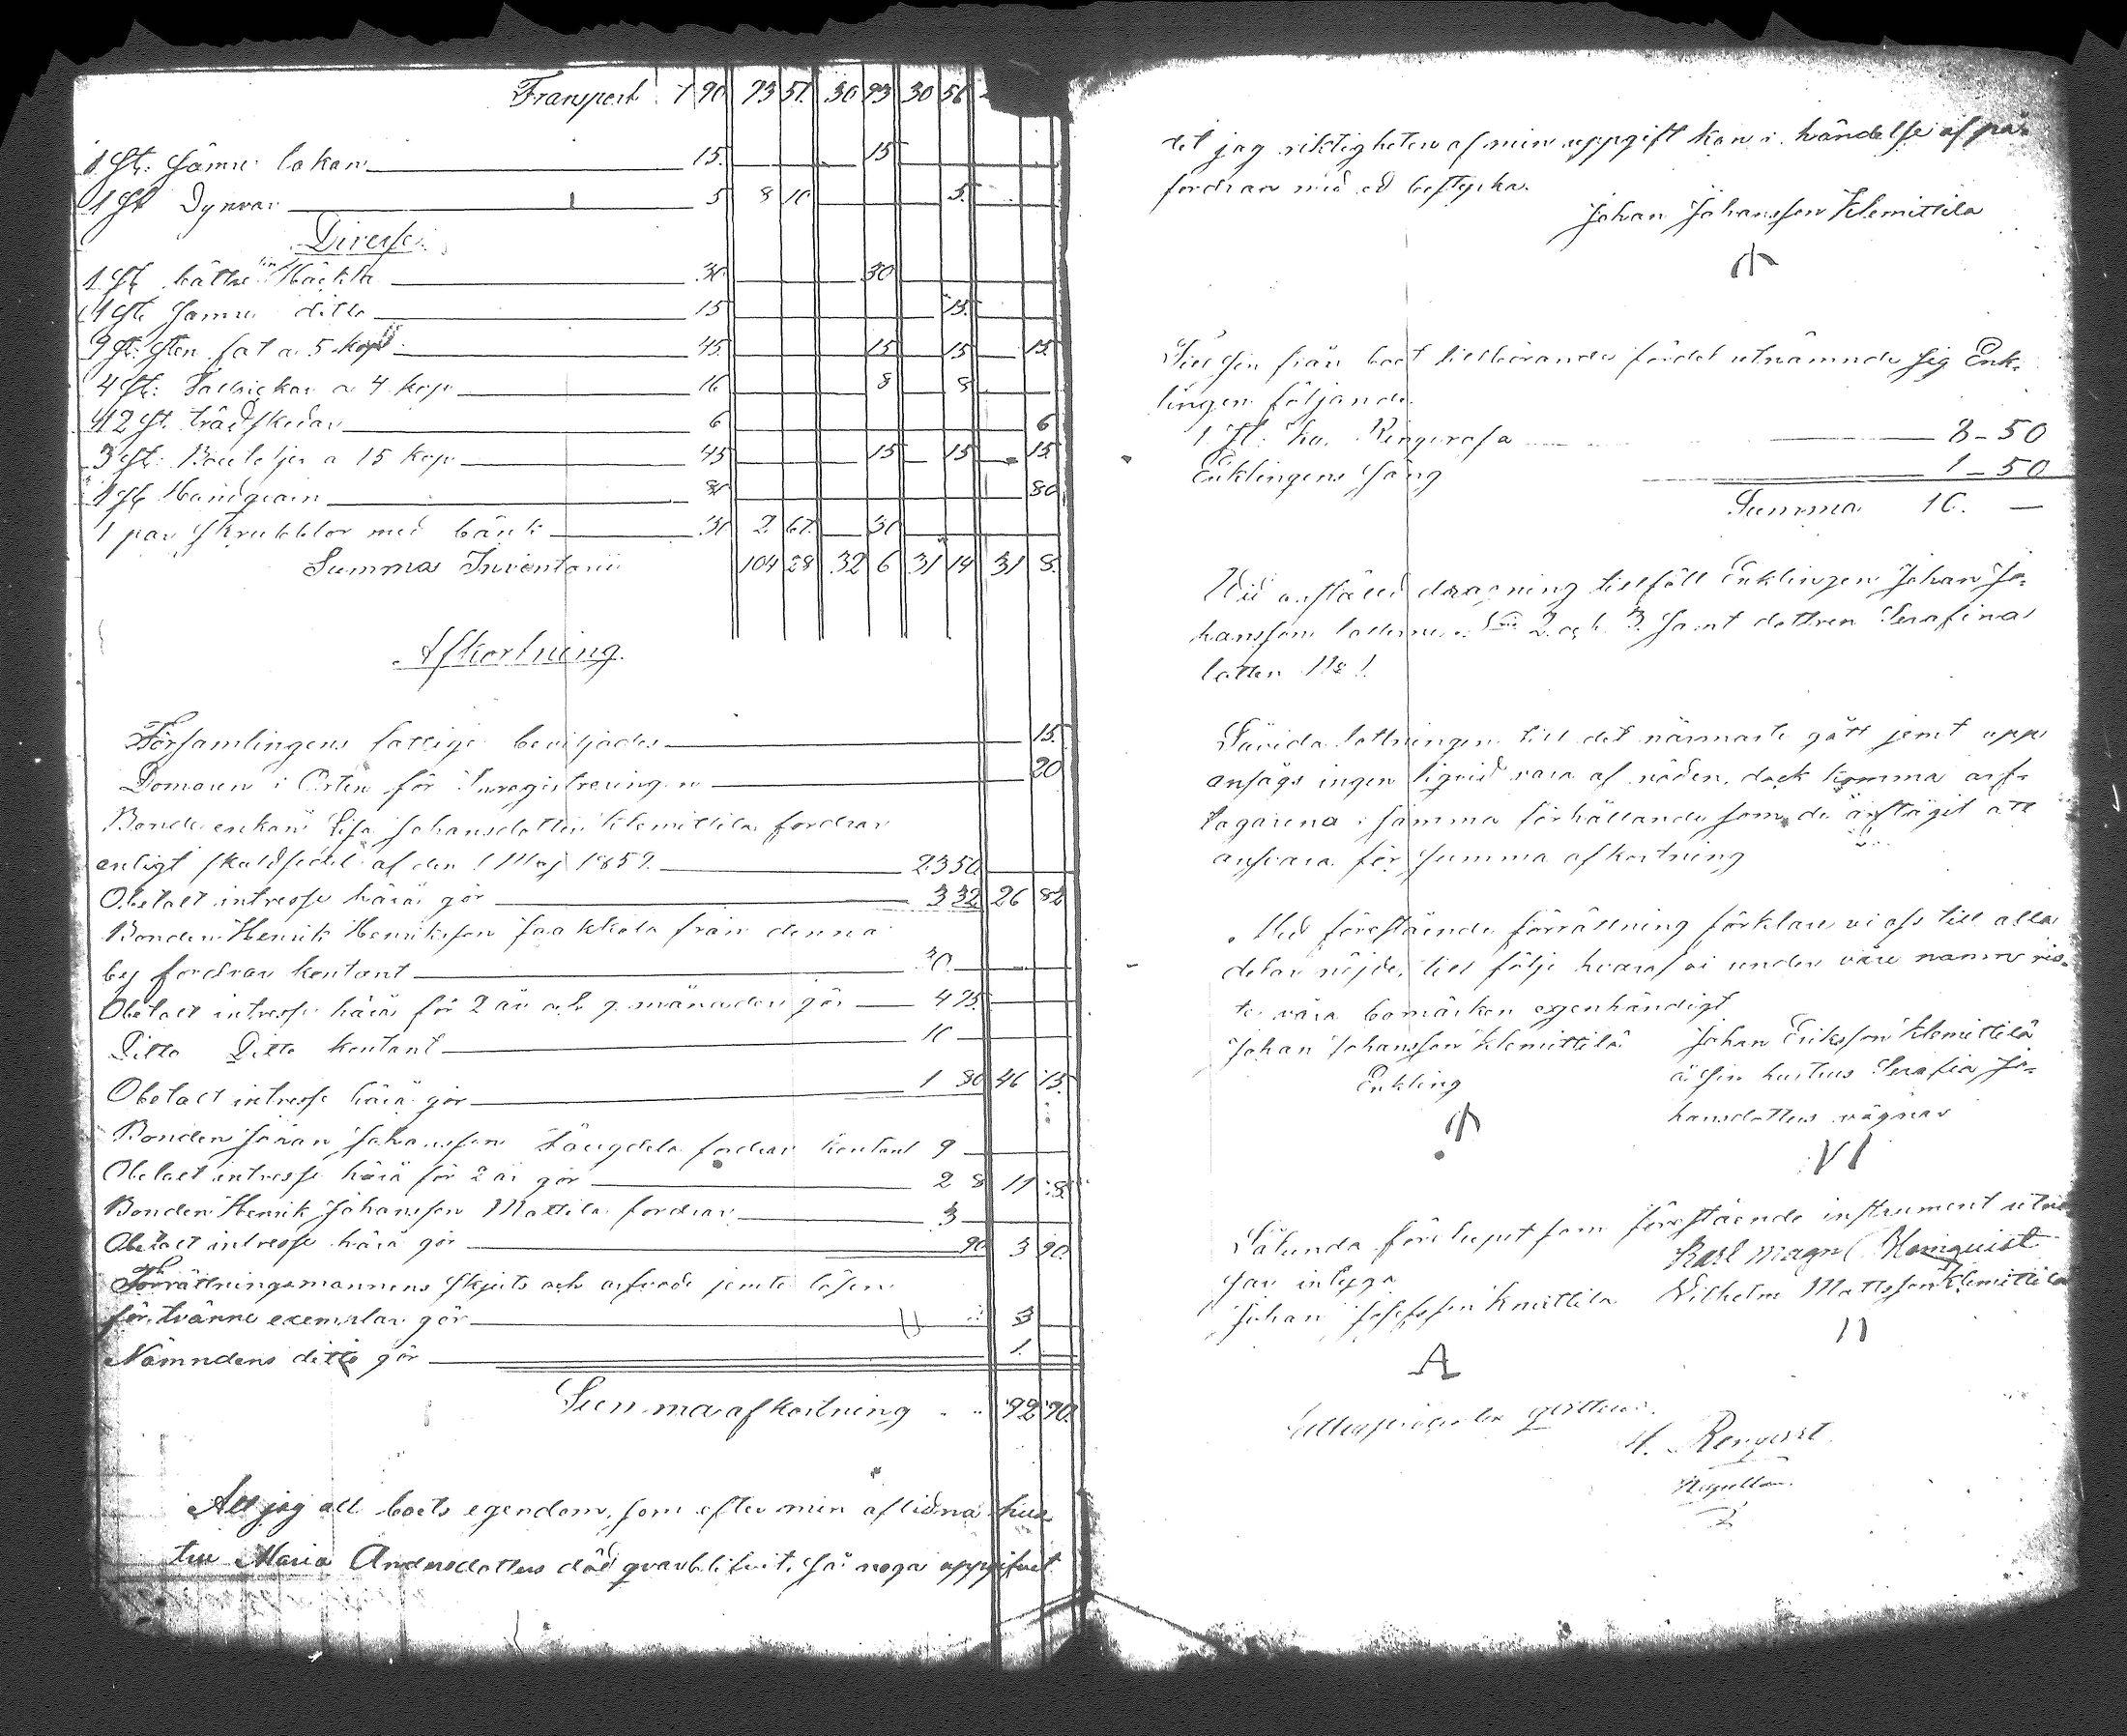 Transport 7 90 93 51 30 93 30 56
1 St: sämre lakan 15. 15
1 St Dynvar 5 8 10 5.
Diverse.
1 St. bättre lin Häckla 30 30
1 St. sämre ditto 15 15.
9 St: Sten fat a 5 kop 45. 15 15 15.
4 St: Tallrickar a 4 kop 16 8 8
12 St. trädskedar 6 6
3 St: Bouteljer a 15 kop 45 15 15 15
1 St Handqvarn 80 80
1 par Skrubblor med bänk 30 2 67. 30
Summa Inventarii 104 28 32 6 31 14 31 8.
Afkortning.
Församlingens fattige beviljades 15.
Domaren i Orten för Inregistreringen 20
Bonde enkan Lisa Johansdotter Klemittila fordrar
enligt skuldsedel af den 1 Maj 1859. 23 50
Obetalt intresse härå gör 3 32 26 82
Bonden Henrik Henriksson Jaakkola från denna
by fordrar kontant 30.
Obetalt intresse härå för 2 år och 9 månader gör 4 95.
Ditto Ditto kontant 10
Obetalt intresse härå gör 1 80 46 75.
Bonden Johan Johansson Långdela fordrar kontant 9
Obetalt intresse härå för 2 år gör 2 8 11 8.
Bonden Henrik Johansson Mattila fordrar 3
Obetalt intresse härå gör 90 3 90.
Förrättningsmannens skjuts och arfvode jemte lösen
för tvänne exemplar gör 3
Nämndens ditto gör 1.
Summa afkortning 92 90.
Att jag all boets egendom, som efter min aflidna hus
tru Maria Andersdotters död qvarblifvit, så noga uppgifvet
det jag riktigheten af min uppgift kan i händelse af på-
fordran med ed bestyrka.
Johan Johansson Klemittila
Till sin från boet tillhörande fördel utnämnde sig Enk-
lingen följande.
1 St: ko, Ringerosa 8 - 50
Enklingens säng 1 - 50
Summa 10. —
Vid anställd dragning tillföll Enklingen Johan Jo-
hansson lotterne No 2 och 3 samt dottren Serafina
lotten No 1.
Såvida lottningen till det närmaste gått jemt upp
ansågs ingen liqvid vara af nöden, dock komma arf-
tagarena i samma förhållande som de ärftagit att
ansvara för summa afkortning
Med förestående förrättning förklare vi oss till alla
delar nöjde, till följe hvaraf vi under våra namn ris-
te våra bomärken egenhändigt
Johan Johansson Klemittilä Johan Eriksson Klemittilä
Enkling å sin hustrus Serafia Jo-
hansdotters vägnar
Sålunda förelupit som förestående instrument utvi-
sar intyga Karl Magn. Holmquist
Johan Josefsson Knuttila Wilhelm Mattsson Klemittila
A
Fattigprocenten qvitteras.
H. Rengvist
Kapellan.